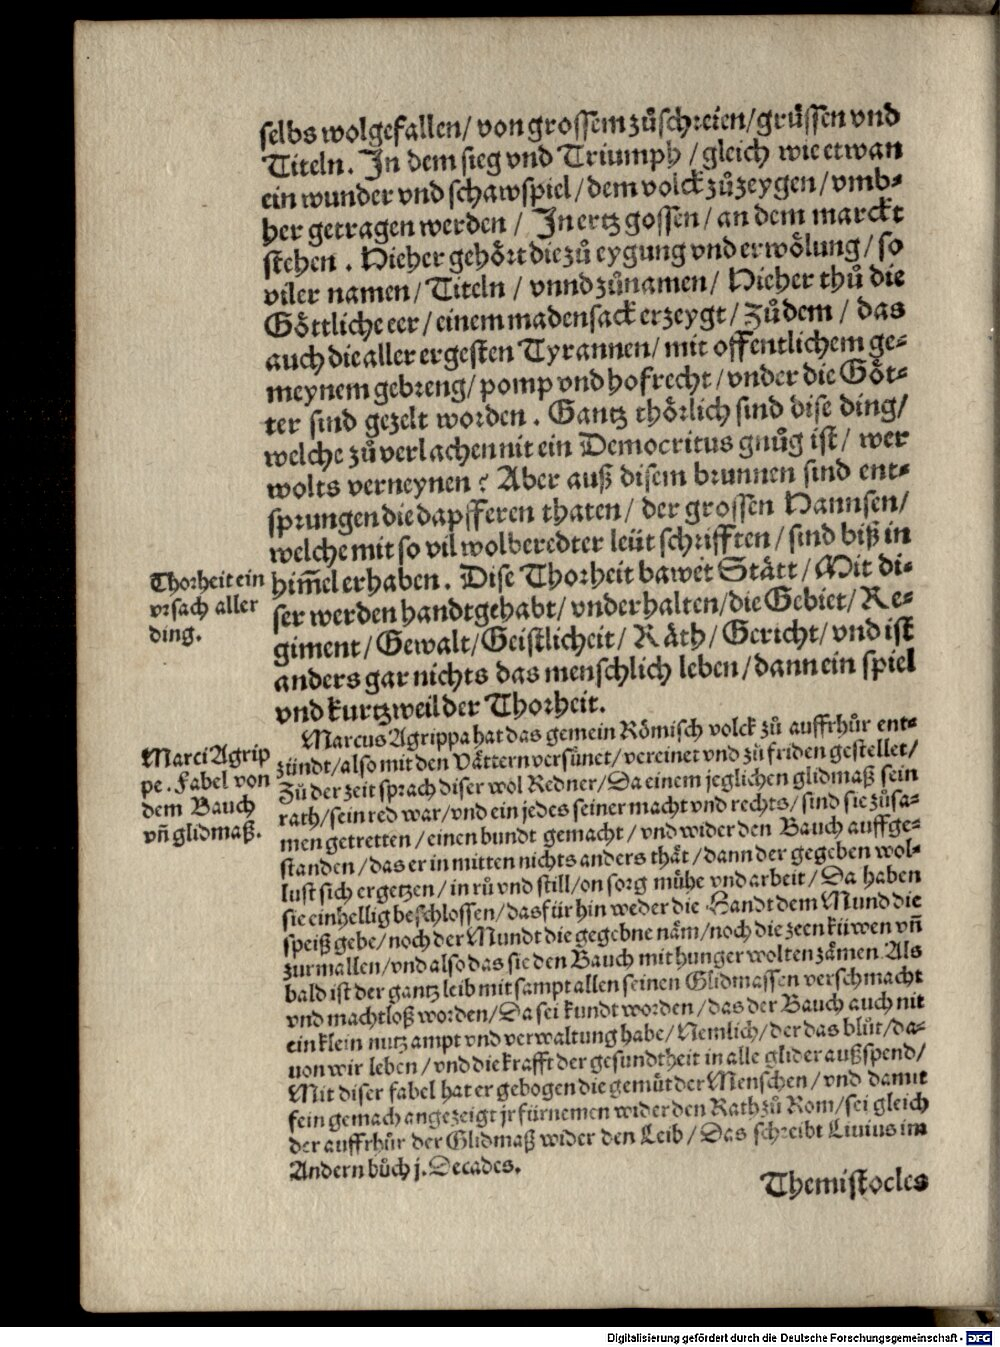 selbs wolgefallen/ von grossem zůschreien/grüssen vnd
Titeln. Jn dem sieg vnd Triumph /gleich wie etwan
ein wunder vnd schawspiel/dem volck zůzeygen/vmb⸗
her getragen werden / Jn ertz gossen/an dem marckt
stehen . Hieher gehört die zů eygung vnd erwölung/ so
viler namen/Titeln / vnnd zůnamen/ Hieher thů die
Göttliche eer/einem madensack erzeygt/Zůdem / das
auch die aller ergesten Tyrannen/mit offentlichem ge⸗
meynem gebreng/pomp vnd hofrecht/vnder die Göt⸗
ter sind gezelt worden . Gantz thörlich sind dise ding/
welche zů verlachen nit ein Democritus gnůg ist/ wer
wolts verneynen ? Aber auß disem brunnen sind ent⸗
sprungen die dapfferen thaten/ der grossen Hannsen/
welche mit so vil wolberedter leüt schrifften/sind biß in
him̃el erhaben . Dise Thorheit bawet Stätt/Mit di⸗
ser werden handtgehabt/vnderhalten/die Gebiet/Re⸗
giment/Gewalt/Geistlicheit/ Räth/Gericht/vnd ist
anders gar nichts das menschlich leben/dann ein spiel
vnd kurtzweil der Thorheit.
Thorheit ein
vrsach aller
ding.
Marcus Agrippa hat das gemein Römisch volck zů auffrhůr ent⸗
zündt/also mit den Vättern versünet/vereinet vnd zů friden gestellet/
Zů der zeit sprach diser wol Redner/Da einem jeglichen glidmaß sein
rath/sein red war/vnd ein jedes seiner macht vnd rechts/sind sie zůsa⸗
men getretten/einen bundt gemacht/vnd wider den Bauch auffge⸗
standen/das er in mitten nichts anders thät/dann der gegeben wol⸗
lust sich ergetzen/in rů vnd still/on sorg mühe vnd arbeit/Da haben
sie einhellig beschlossen/das für hin weder die Handt dem Mund die
speiß gebe/noch der Mundt die gegebne näm/noch die zeen küwen vñ
zurmallen/vnd also das sie den Bauch mit hunger wolten zämen Als
bald ist der gantz leib mit sampt allen seinen Glidmassen verschmacht
vnd machtloß worden/Da sei kundt worden/das der Bauch auch nit
ein klein nutz ampt vnd verwaltung habe/Nemlich/der das blůt/da⸗
uon wir leben/vnd die krafft der gesundtheit in alle glider außspend/
Mit diser fabel hat er gebogen die gemüt der Menschen/vnd damit
fein gemach angezeigt jr fürnemen wider den Rath zů Rom/sei gleich
der auffrhůr der Glidmaß wider den Leib/Das schreibt Liuius im
Andern bůch j. Decades.
Marci Agrip
pe . Fabel von
dem Bauch
vñ glidmaß.
Themistocles
Digitalisierung gefördert durch die Deutsche Forschungsgemeinschaft - DFG